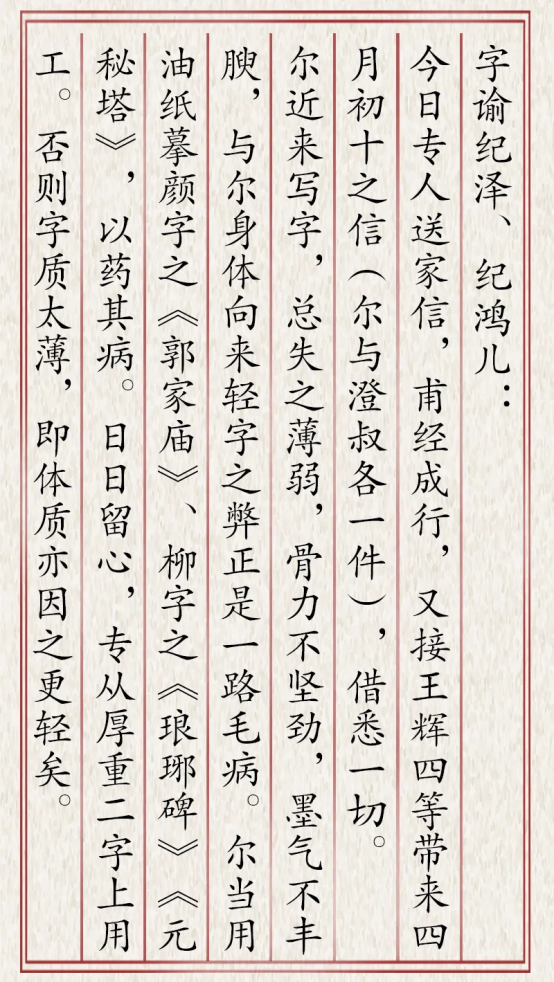 字谕纪泽、纪鸿儿：
今日专人送家信，甫经成行，又接王辉四等带来四
月初十之信（尔与澄叔各一件），借悉一切。
尔近来写字，总失之薄弱，骨力不坚劲，墨气不丰
腴，与尔身体向来轻字之弊正是一路毛病。尔当用
油纸摹颜字之《郭家庙》、柳字之《琅琊碑》《元
秘塔》，以药其病。日日留心，专从厚重二字上用
工。否则字质太薄，即体质亦因之更轻矣。